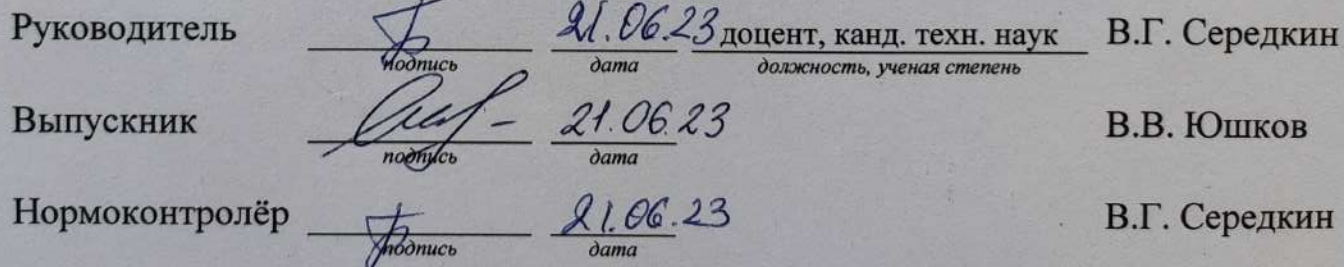 Руководитель 21.06.23 доцент, канд. техн. наук В.Г. Середкин
подпись дата должность, ученая степень
Выпускник 21.06.23 В.В. Юшков
подпись дата
Нормоконтролёр 21.06.23 В.Г. Середкин
подпись дата